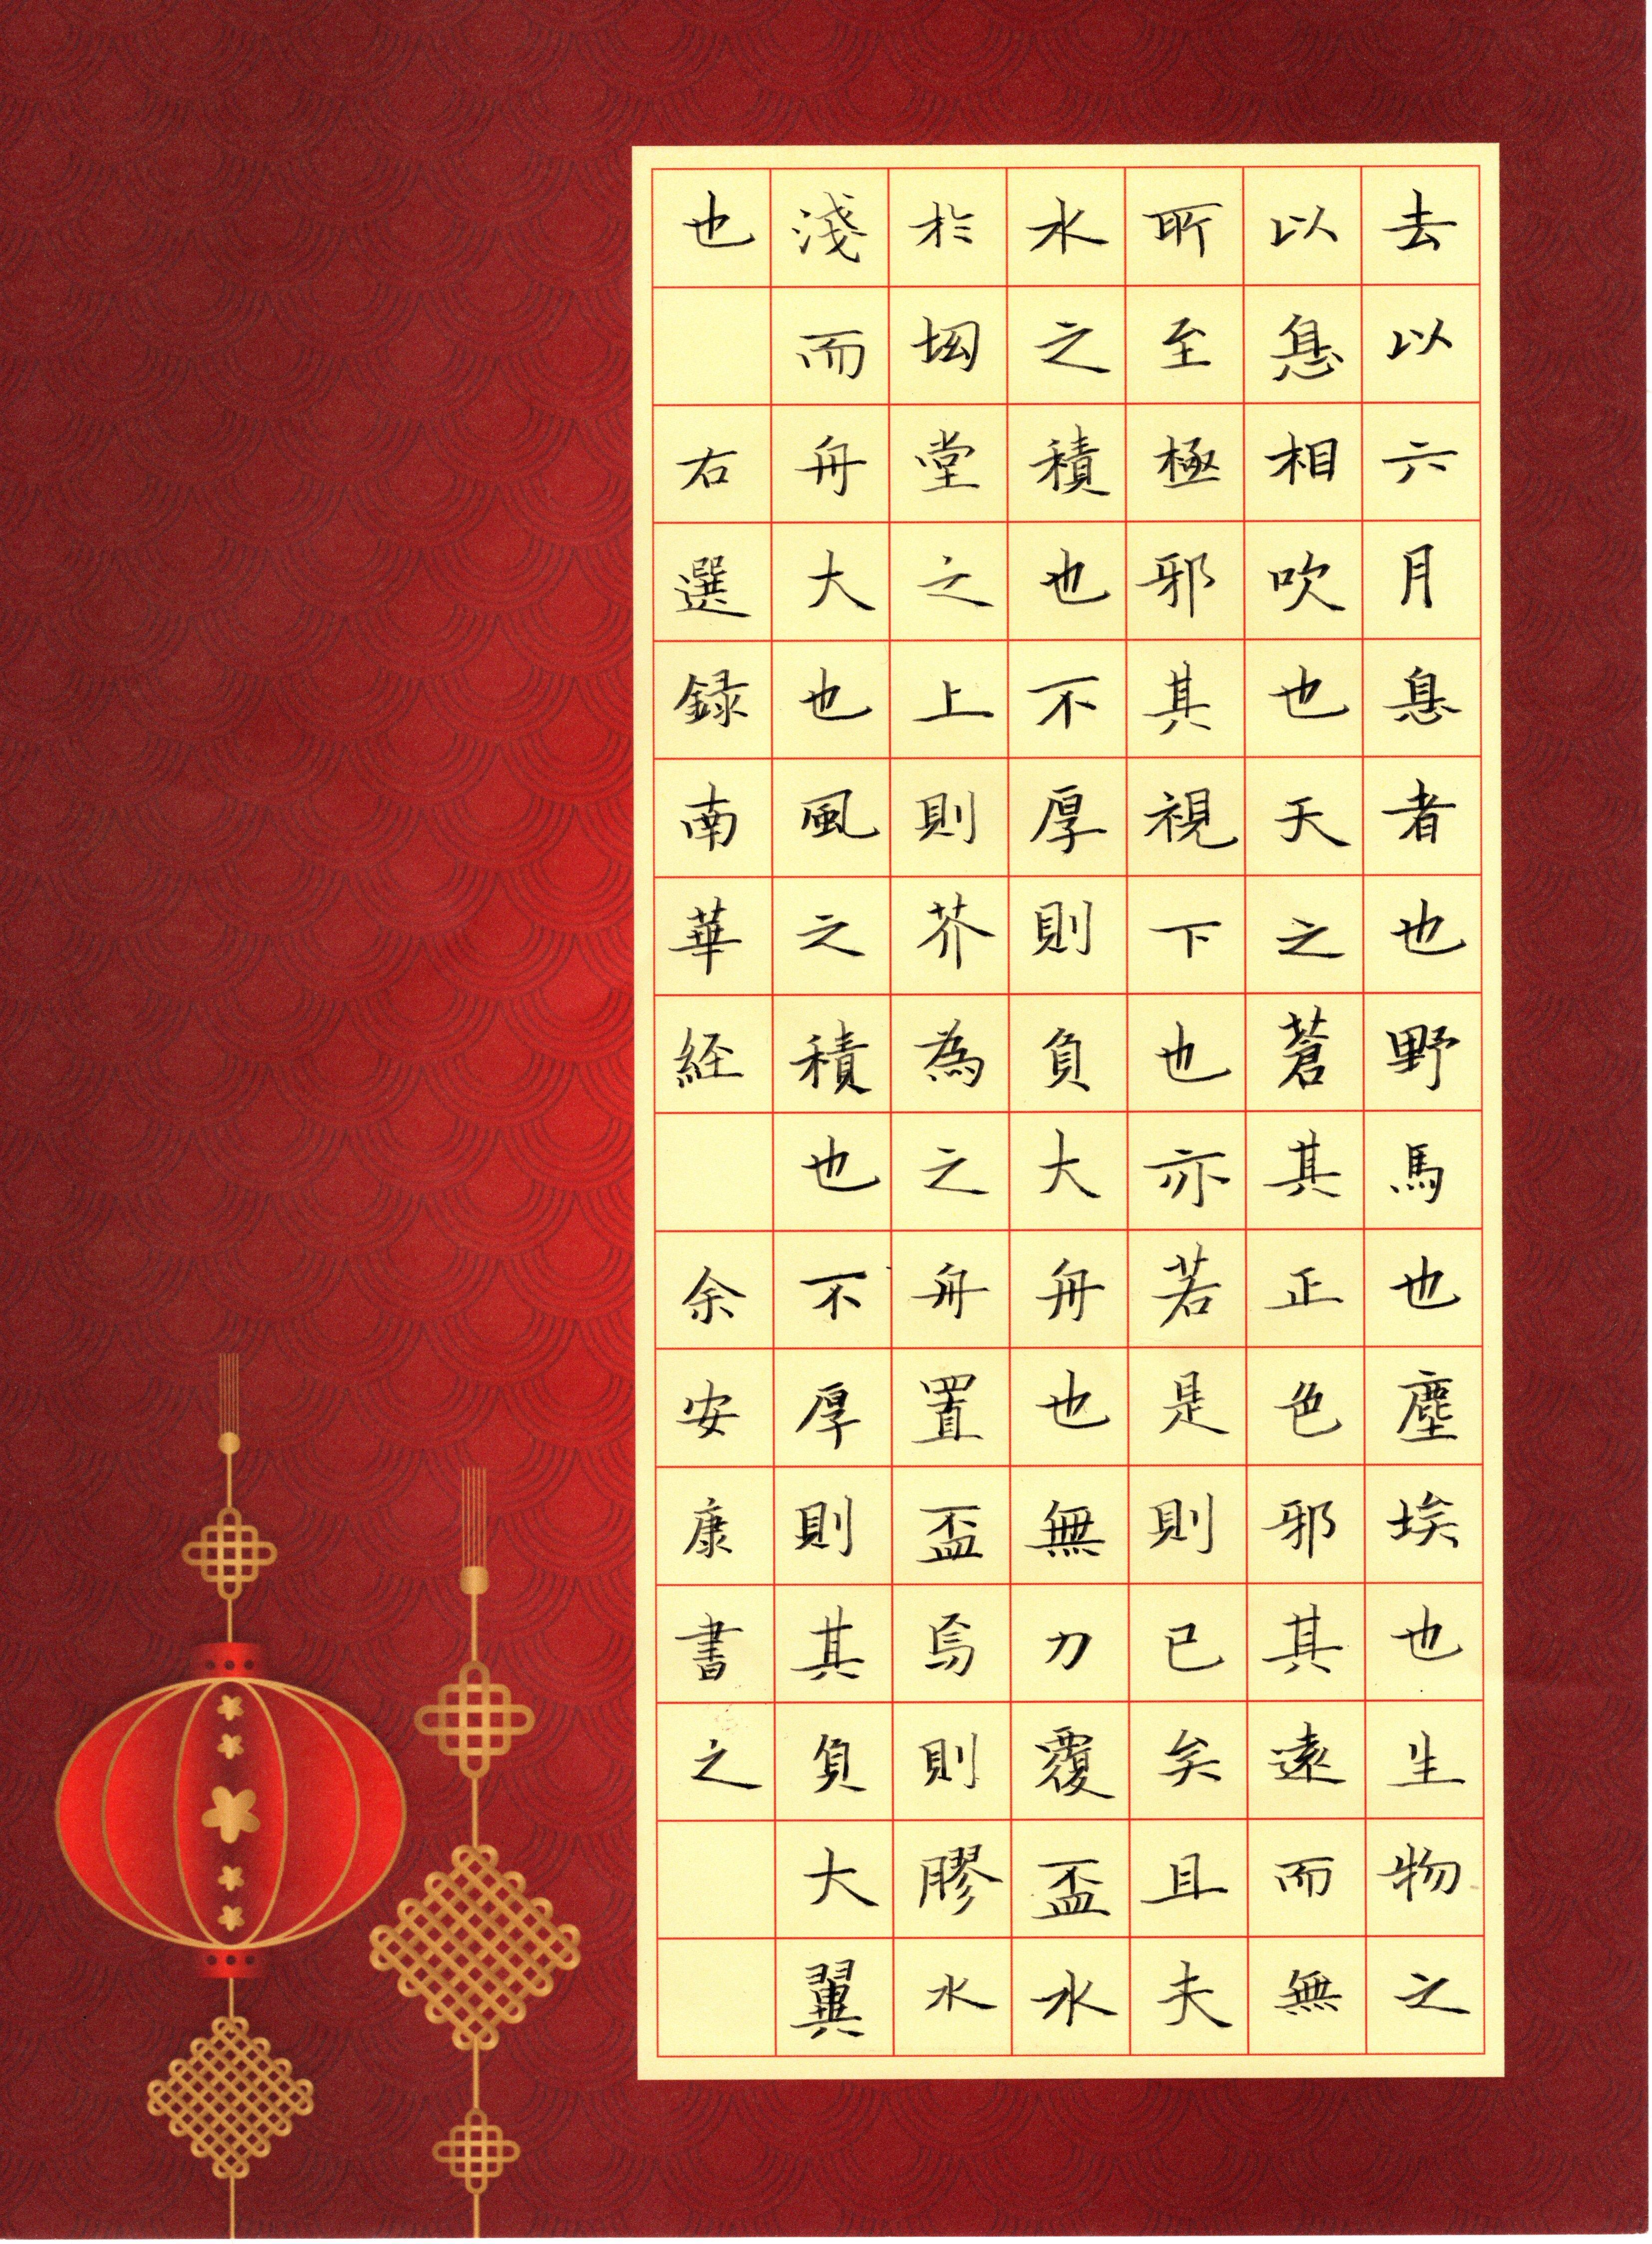 去以六月息者也野馬也塵埃也生物之
以息相吹也天之蒼其正色邪其遠而無
所至極邪其視下也亦若是則已矣且夫
水之積也不厚則負大舟也無力覆盃水
於坳堂之上則芥為之舟置盃焉則膠水
淺而舟大也風之積也不厚則其負大翼
也 右選録南華經 余安康書之